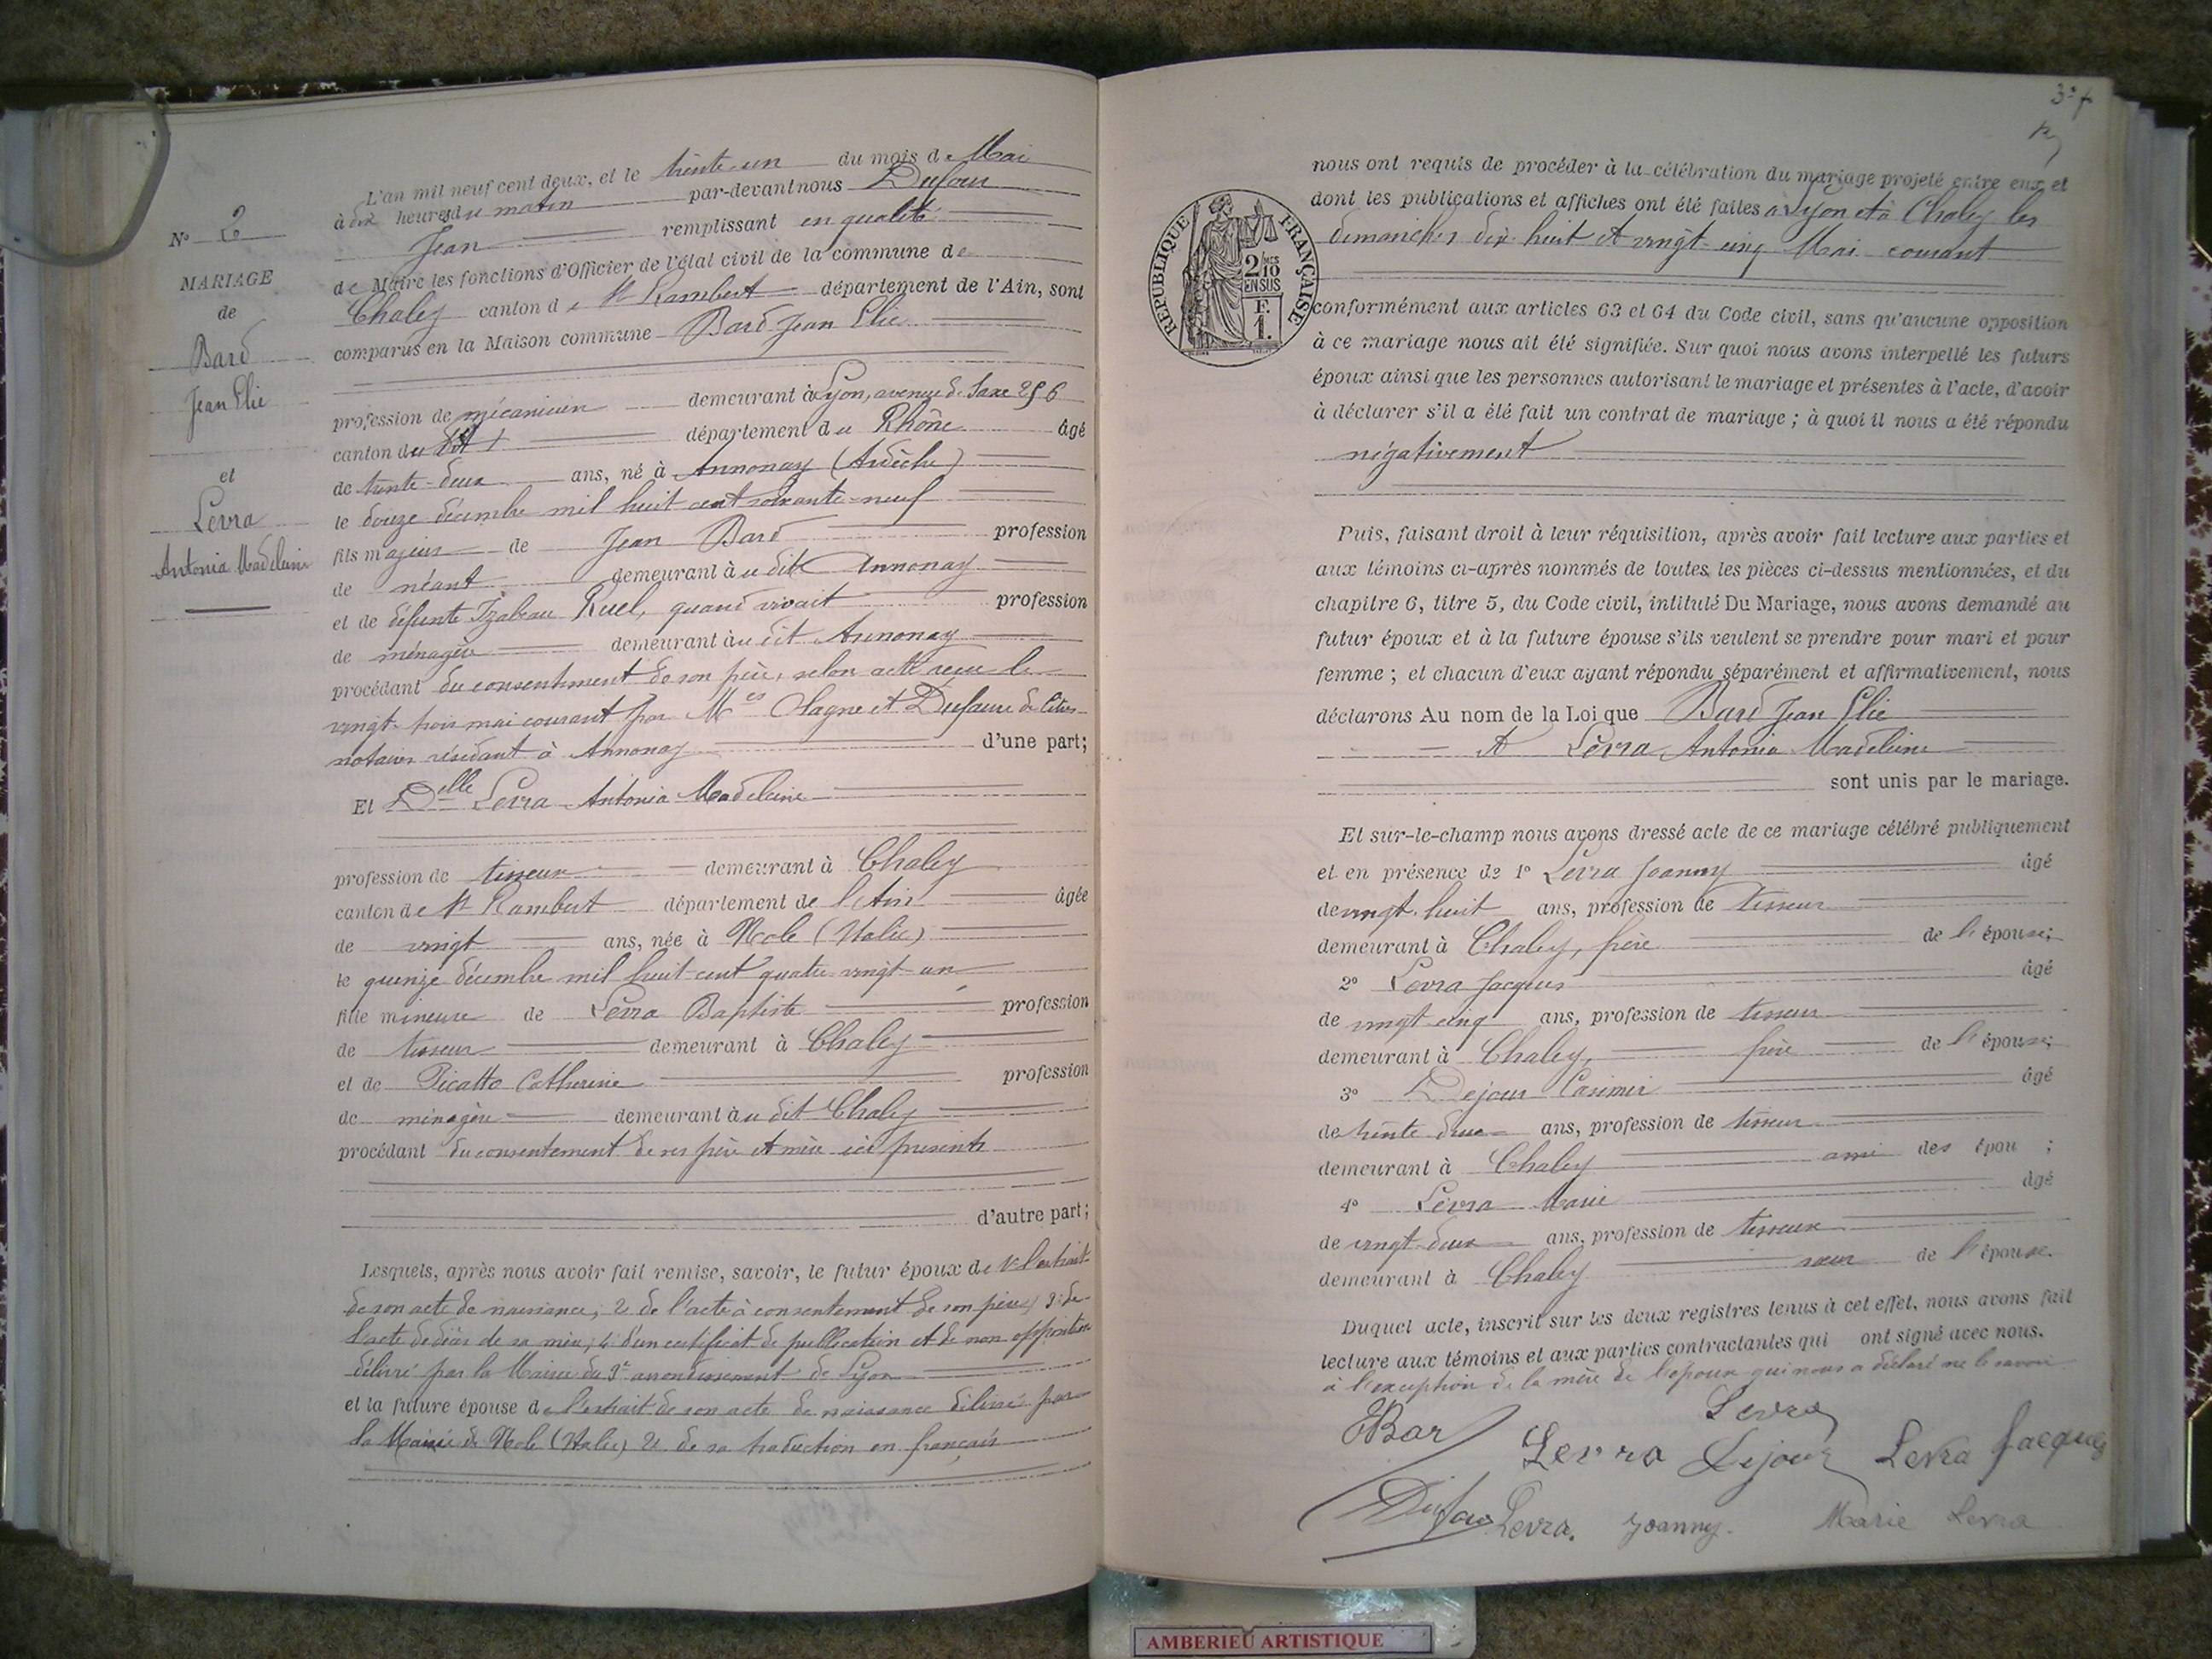 L'an mil neuf cent deux, et le trente-un du mois de Mai
à dix heures du matin par-devant nous Dufour
Jean remplissant en qualité
de Maire les fonctions d'Officier de l'état civil de la commune de
Chaley canton de St Rambert département de l'Ain, sont
comparus en la Maison commune Bard Jean Elie
profession de mécanicien demeurant à Lyon, avenue de Saxe 256
canton du dit département du Rhône âgé
de trente-deux ans, né à Annonay (Ardèche)
le douze décembre mil huit cent soixante-neuf
fils majeur de Jean Bard profession
de néant demeurant au dit Annonay
et de défunte Izabeau Ruel, quand vivait profession
de ménagère demeurant au dit Annonay
procédant du consentement de son père, selon acte reçu le
vingt-trois mai courant par Mes Olagne et Dufaure de
notaires résidant à Annonay d'une part;
Et Delle Levra Antonia Madeleine
profession de tisseuse demeurant à Chaley
canton de St Rambert département de l'Ain âgée
de vingt ans, née à Nole (Italie)
le quinze décembre mil huit cent quatre-vingt-un
fille mineure de Levra Baptiste profession
de tisseur demeurant à Chaley
et de Picatto Catherine profession
de ménagère demeurant au dit Chaley
procédant du consentement de ses père et mère ici présents
d'autre part;
Lesquels, après nous avoir fait remise, savoir, le futur époux de 1° l'extrait
de son acte de naissance; 2° de l'acte à consentement de son père; 3° de
l'acte de décès de sa mère; 4° d'un certificat de publication et de non opposition
délivré par la Mairie du 3e arrondissement de Lyon
et la future épouse de l'extrait de son acte de naissance délivré par
la Mairie de Nole (Italie) 2° de sa traduction en français
N° 2
MARIAGE
de
Bard
Jean Elie
et
Levra
Antonia Madeleine
nous ont requis de procéder à la célébration du mariage projeté entre eux et
dont les publications et affiches ont été faites à Lyon et à Chaley les
dimanches dix-huit et vingt-cinq Mai courant
conformément aux articles 63 et 64 du Code civil, sans qu'aucune opposition
à ce mariage nous ait été signifiée. Sur quoi nous avons interpellé les futurs
époux ainsi que les personnes autorisant le mariage et présentes à l'acte, d'avoir
à déclarer s'il a été fait un contrat de mariage ; à quoi il nous a été répondu
négativement
Puis, faisant droit à leur réquisition, après avoir fait lecture aux parties et
aux témoins ci-après nommés de toutes les pièces ci-dessus mentionnées, et du
chapitre 6, titre 5, du Code civil, intitulé Du Mariage, nous avons demandé au
futur époux et à la future épouse s'ils veulent se prendre pour mari et pour
femme ; et chacun d'eux ayant répondu séparément et affirmativement, nous
déclarons Au nom de la Loi que Bard Jean Elie
et Levra Antonia Madeleine
sont unis par le mariage.
Et sur-le-champ nous avons dressé acte de ce mariage célébré publiquement
et en présence de 1° Levra Joanny âgé
de vingt-huit ans, profession de tisseur
demeurant à Chaley, frère de l'épouse;
2° Levra Jacques âgé
de vingt cinq ans, profession de tisseur
demeurant à Chaley, frère de l'épouse;
3° Dejour Casimir âgé
de trente deux ans, profession de tisseur
demeurant à Chaley ami des épou ;
4° Levra Marie âgé
de vingt-deux ans, profession de tisseuse
demeurant à Chaley soeur de l'épouse.
Duquel acte, inscrit sur les deux registres tenus à cet effet, nous avons fait
lecture aux témoins et aux parties contractantes qui ont signé avec nous.
à l'exception de la mère de l'épouse qui nous a déclaré ne le savoir
EBar Levra
Levra Dejour Levra Jacques
Dufour Levra. Joanny. Marie Levra
RÉPUBLIQUE FRANÇAISE
2/10MES
EN SUS
F.
1.
AMBERIEU ARTISTIQUE